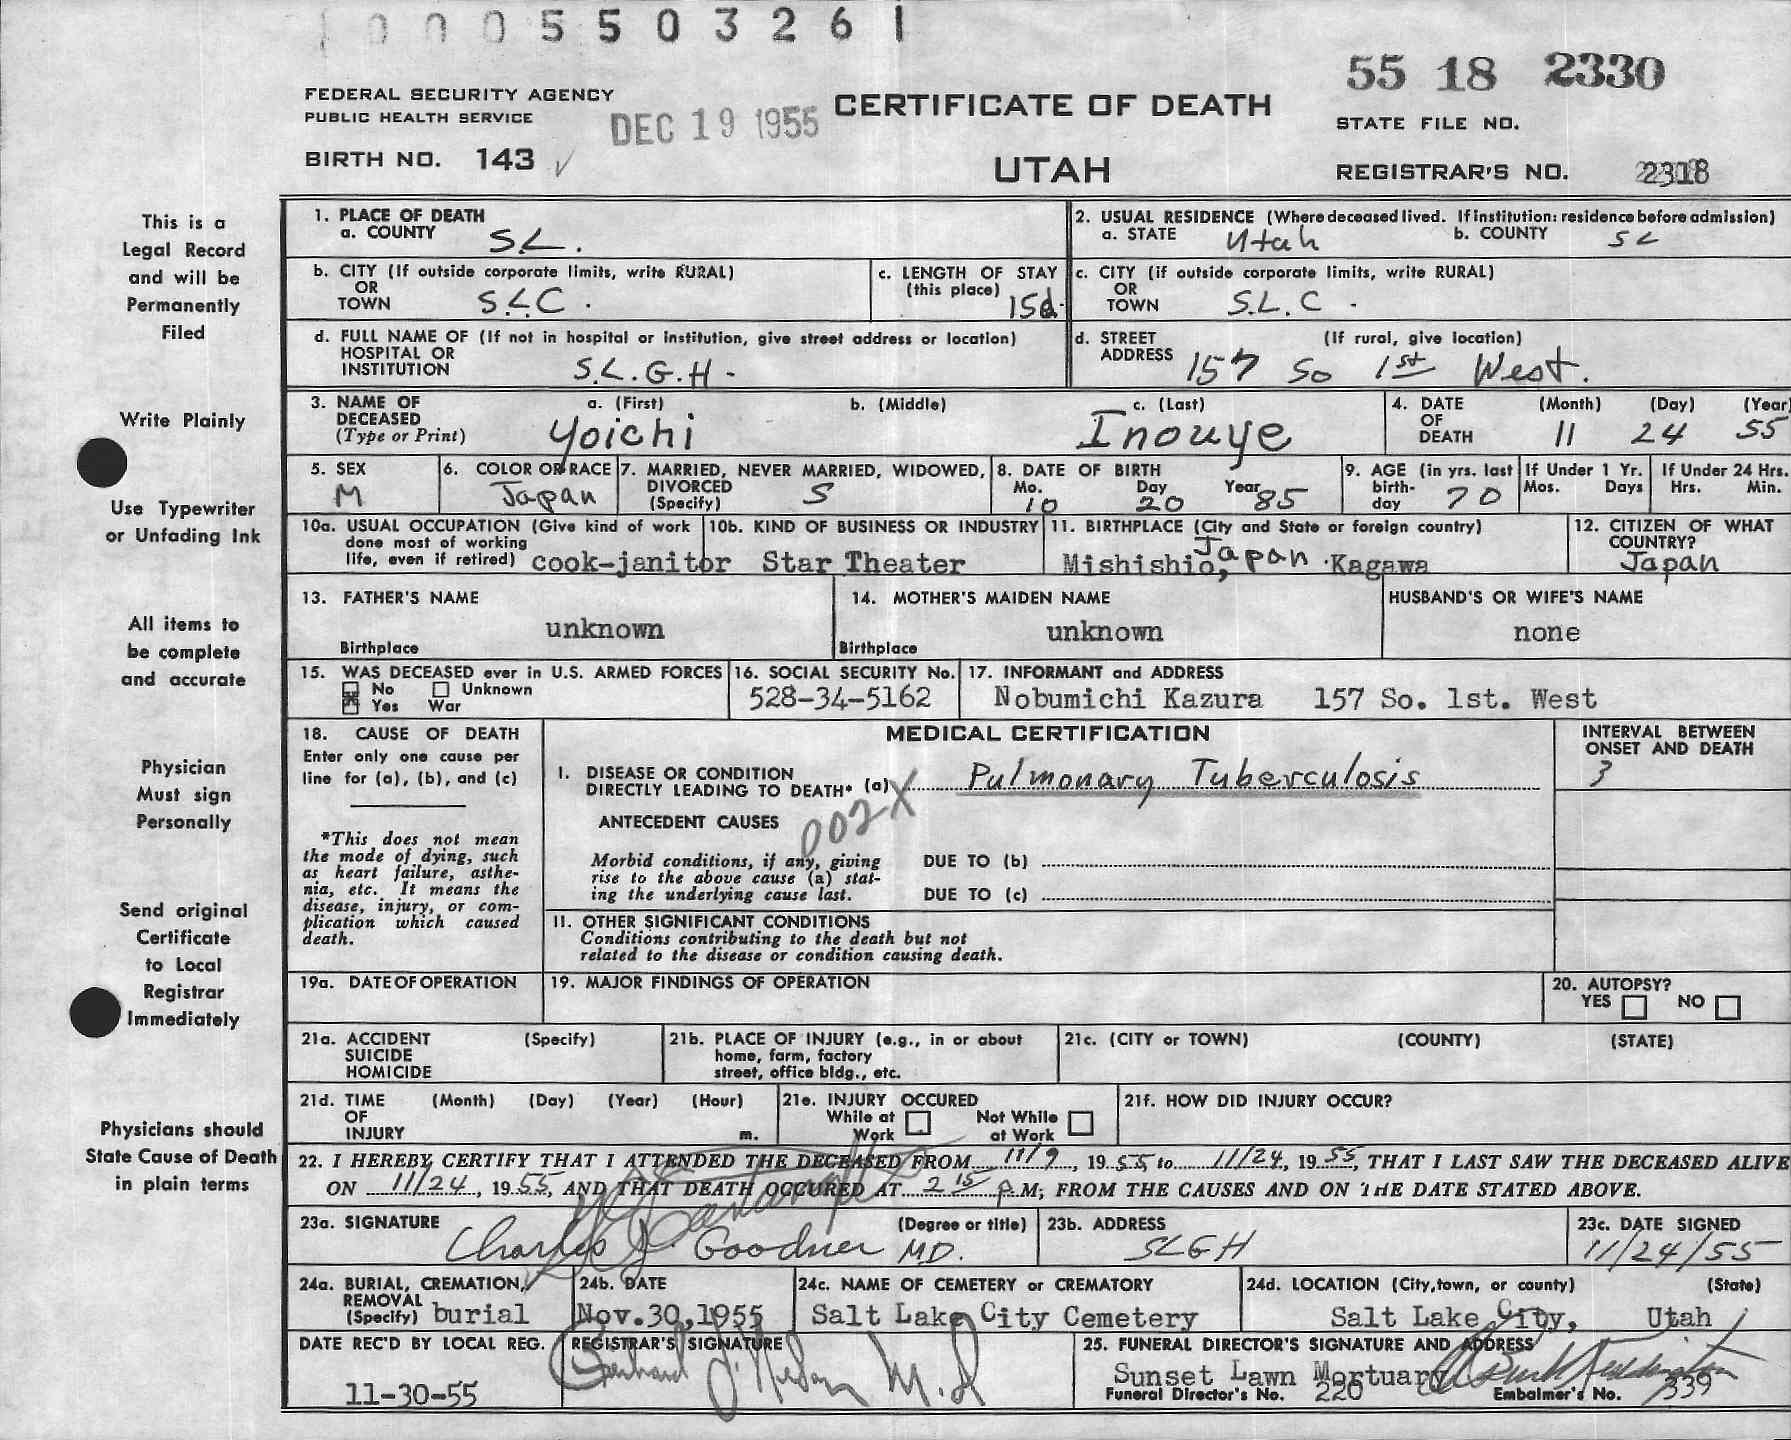 1000 5503261
55 18 2330
FEDERAL SECURITY AGENCY
PUBLIC HEALTH SERVICE
DEC 19 1955
CERTIFICATE OF DEATH
STATE FILE NO.
BIRTH NO. 143 ✓
UTAH
REGISTRAR'S NO. 2318
This is a
Legal Record
and will be
Permanently
Filed
Write Plainly
Use Typewriter
or Unfading Ink
All items to
be complete
and accurate
Physician
Must sign
Personally
Send original
Certificate
to Local
Registrar
Immediately
Physicians should
State Cause of Death
in plain terms
1. PLACE OF DEATH
a. COUNTY S.L.
2. USUAL RESIDENCE (Where deceased lived. If institution: residence before admission)
a. STATE Utah b. COUNTY SL
b. CITY (If outside corporate limits, write RURAL)
OR
TOWN S.L.C.
c. LENGTH OF STAY
(this place) 15d.
c. CITY (if outside corporate limits, write RURAL)
OR
TOWN S.L.C.
d. FULL NAME OF (If not in hospital or institution, give street address or location)
HOSPITAL OR
INSTITUTION S.L.G.H.
d. STREET (If rural, give location)
ADDRESS 157 So 1st West.
3. NAME OF a. (First) b. (Middle) c. (Last)
DECEASED
(Type or Print) Yoichi Inouye
4. DATE (Month) (Day) (Year)
OF
DEATH 11 24 55
5. SEX
M
6. COLOR OR RACE
Japan
7. MARRIED, NEVER MARRIED, WIDOWED,
DIVORCED
(Specify) S
8. DATE OF BIRTH
Mo. Day Year
10 20 85
9. AGE (in yrs. last
birth-
day 70
If Under 1 Yr.
Mos. Days
If Under 24 Hrs.
Hrs. Min.
10a. USUAL OCCUPATION (Give kind of work
done most of working
life, even if retired) cook-janitor
10b. KIND OF BUSINESS OR INDUSTRY
Star Theater
11. BIRTHPLACE (City and State or foreign country)
Mishishio, Japan Kagawa
12. CITIZEN OF WHAT
COUNTRY?
Japan
13. FATHER'S NAME
unknown
Birthplace
14. MOTHER'S MAIDEN NAME
unknown
Birthplace
HUSBAND'S OR WIFE'S NAME
none
15. WAS DECEASED ever in U.S. ARMED FORCES
No Unknown
Yes War
16. SOCIAL SECURITY No.
528-34-5162
17. INFORMANT and ADDRESS
Nobumichi Kazura 157 So. 1st. West
18. CAUSE OF DEATH
Enter only one cause per
line for (a), (b), and (c)
*This does not mean
the mode of dying, such
as heart failure, asthe-
nia, etc. It means the
disease, injury, or com-
plication which caused
death.
MEDICAL CERTIFICATION
I. DISEASE OR CONDITION
DIRECTLY LEADING TO DEATH* (a) Pulmonary Tuberculosis
002X
ANTECEDENT CAUSES
Morbid conditions, if any, giving
rise to the above cause (a) stat-
ing the underlying cause last.
DUE TO (b)
DUE TO (c)
II. OTHER SIGNIFICANT CONDITIONS
Conditions contributing to the death but not
related to the disease or condition causing death.
INTERVAL BETWEEN
ONSET AND DEATH
3
19a. DATE OF OPERATION
19. MAJOR FINDINGS OF OPERATION
20. AUTOPSY?
YES NO
21a. ACCIDENT (Specify)
SUICIDE
HOMICIDE
21b. PLACE OF INJURY (e.g., in or about
home, farm, factory
street, office bldg., etc.
21c. (CITY or TOWN) (COUNTY) (STATE)
21d. TIME (Month) (Day) (Year) (Hour)
OF
INJURY m.
21e. INJURY OCCURED
While at Not While
Work at Work
21f. HOW DID INJURY OCCUR?
22. I HEREBY CERTIFY THAT I ATTENDED THE DECEASED FROM 11/9, 1955 to 11/24, 1955, THAT I LAST SAW THE DECEASED ALIVE
ON 11/24, 1955, AND THAT DEATH OCCURED AT 2 15 P.M; FROM THE CAUSES AND ON THE DATE STATED ABOVE.
23a. SIGNATURE (Degree or title)
Charles J. Goodner M.D.
23b. ADDRESS
SLGH
23c. DATE SIGNED
11/24/55
24a. BURIAL, CREMATION,
REMOVAL
(Specify) burial
24b. DATE
Nov.30,1955
24c. NAME OF CEMETERY or CREMATORY
Salt Lake City Cemetery
24d. LOCATION (City, town, or county) (State)
Salt Lake City, Utah
DATE REC'D BY LOCAL REG.
11-30-55
REGISTRAR'S SIGNATURE
M.D
25. FUNERAL DIRECTOR'S SIGNATURE AND ADDRESS
Sunset Lawn Mortuary
Funeral Director's No. 220 Embalmer's No. 339